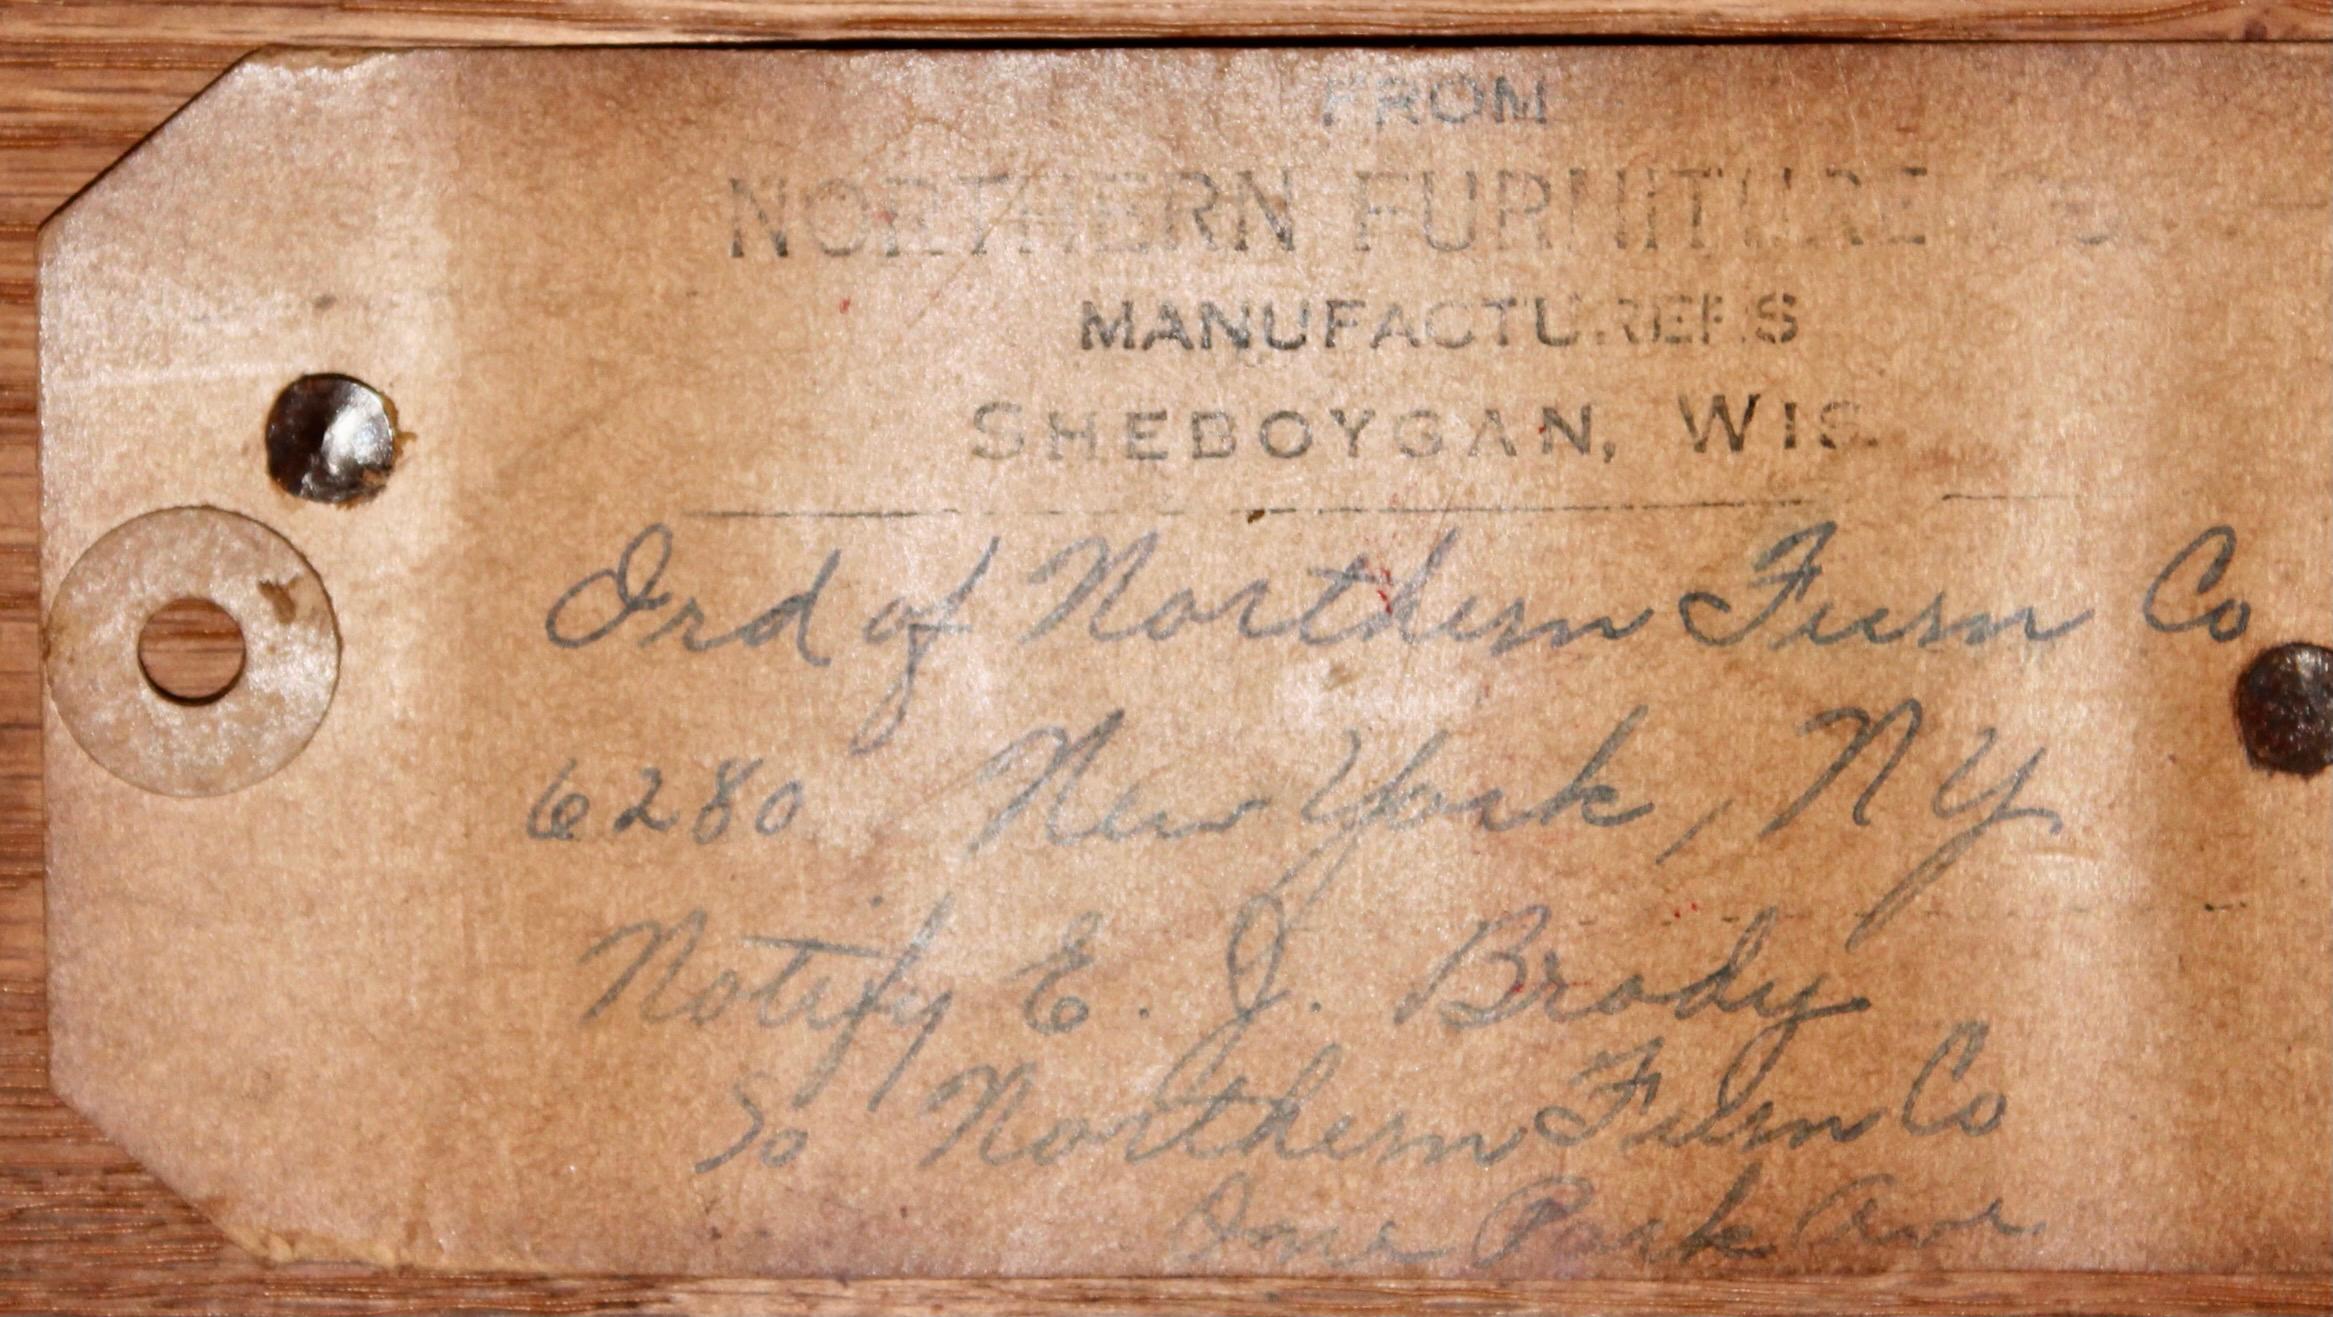 FROM
NORTHERN FURNITURE CO.
MANUFACTURERS
SHEBOYGAN, WIS.
Ord of Northern Furn Co
6280 New York, NY
Notify E. J. Brody
Northern Furn Co
One Park Ave